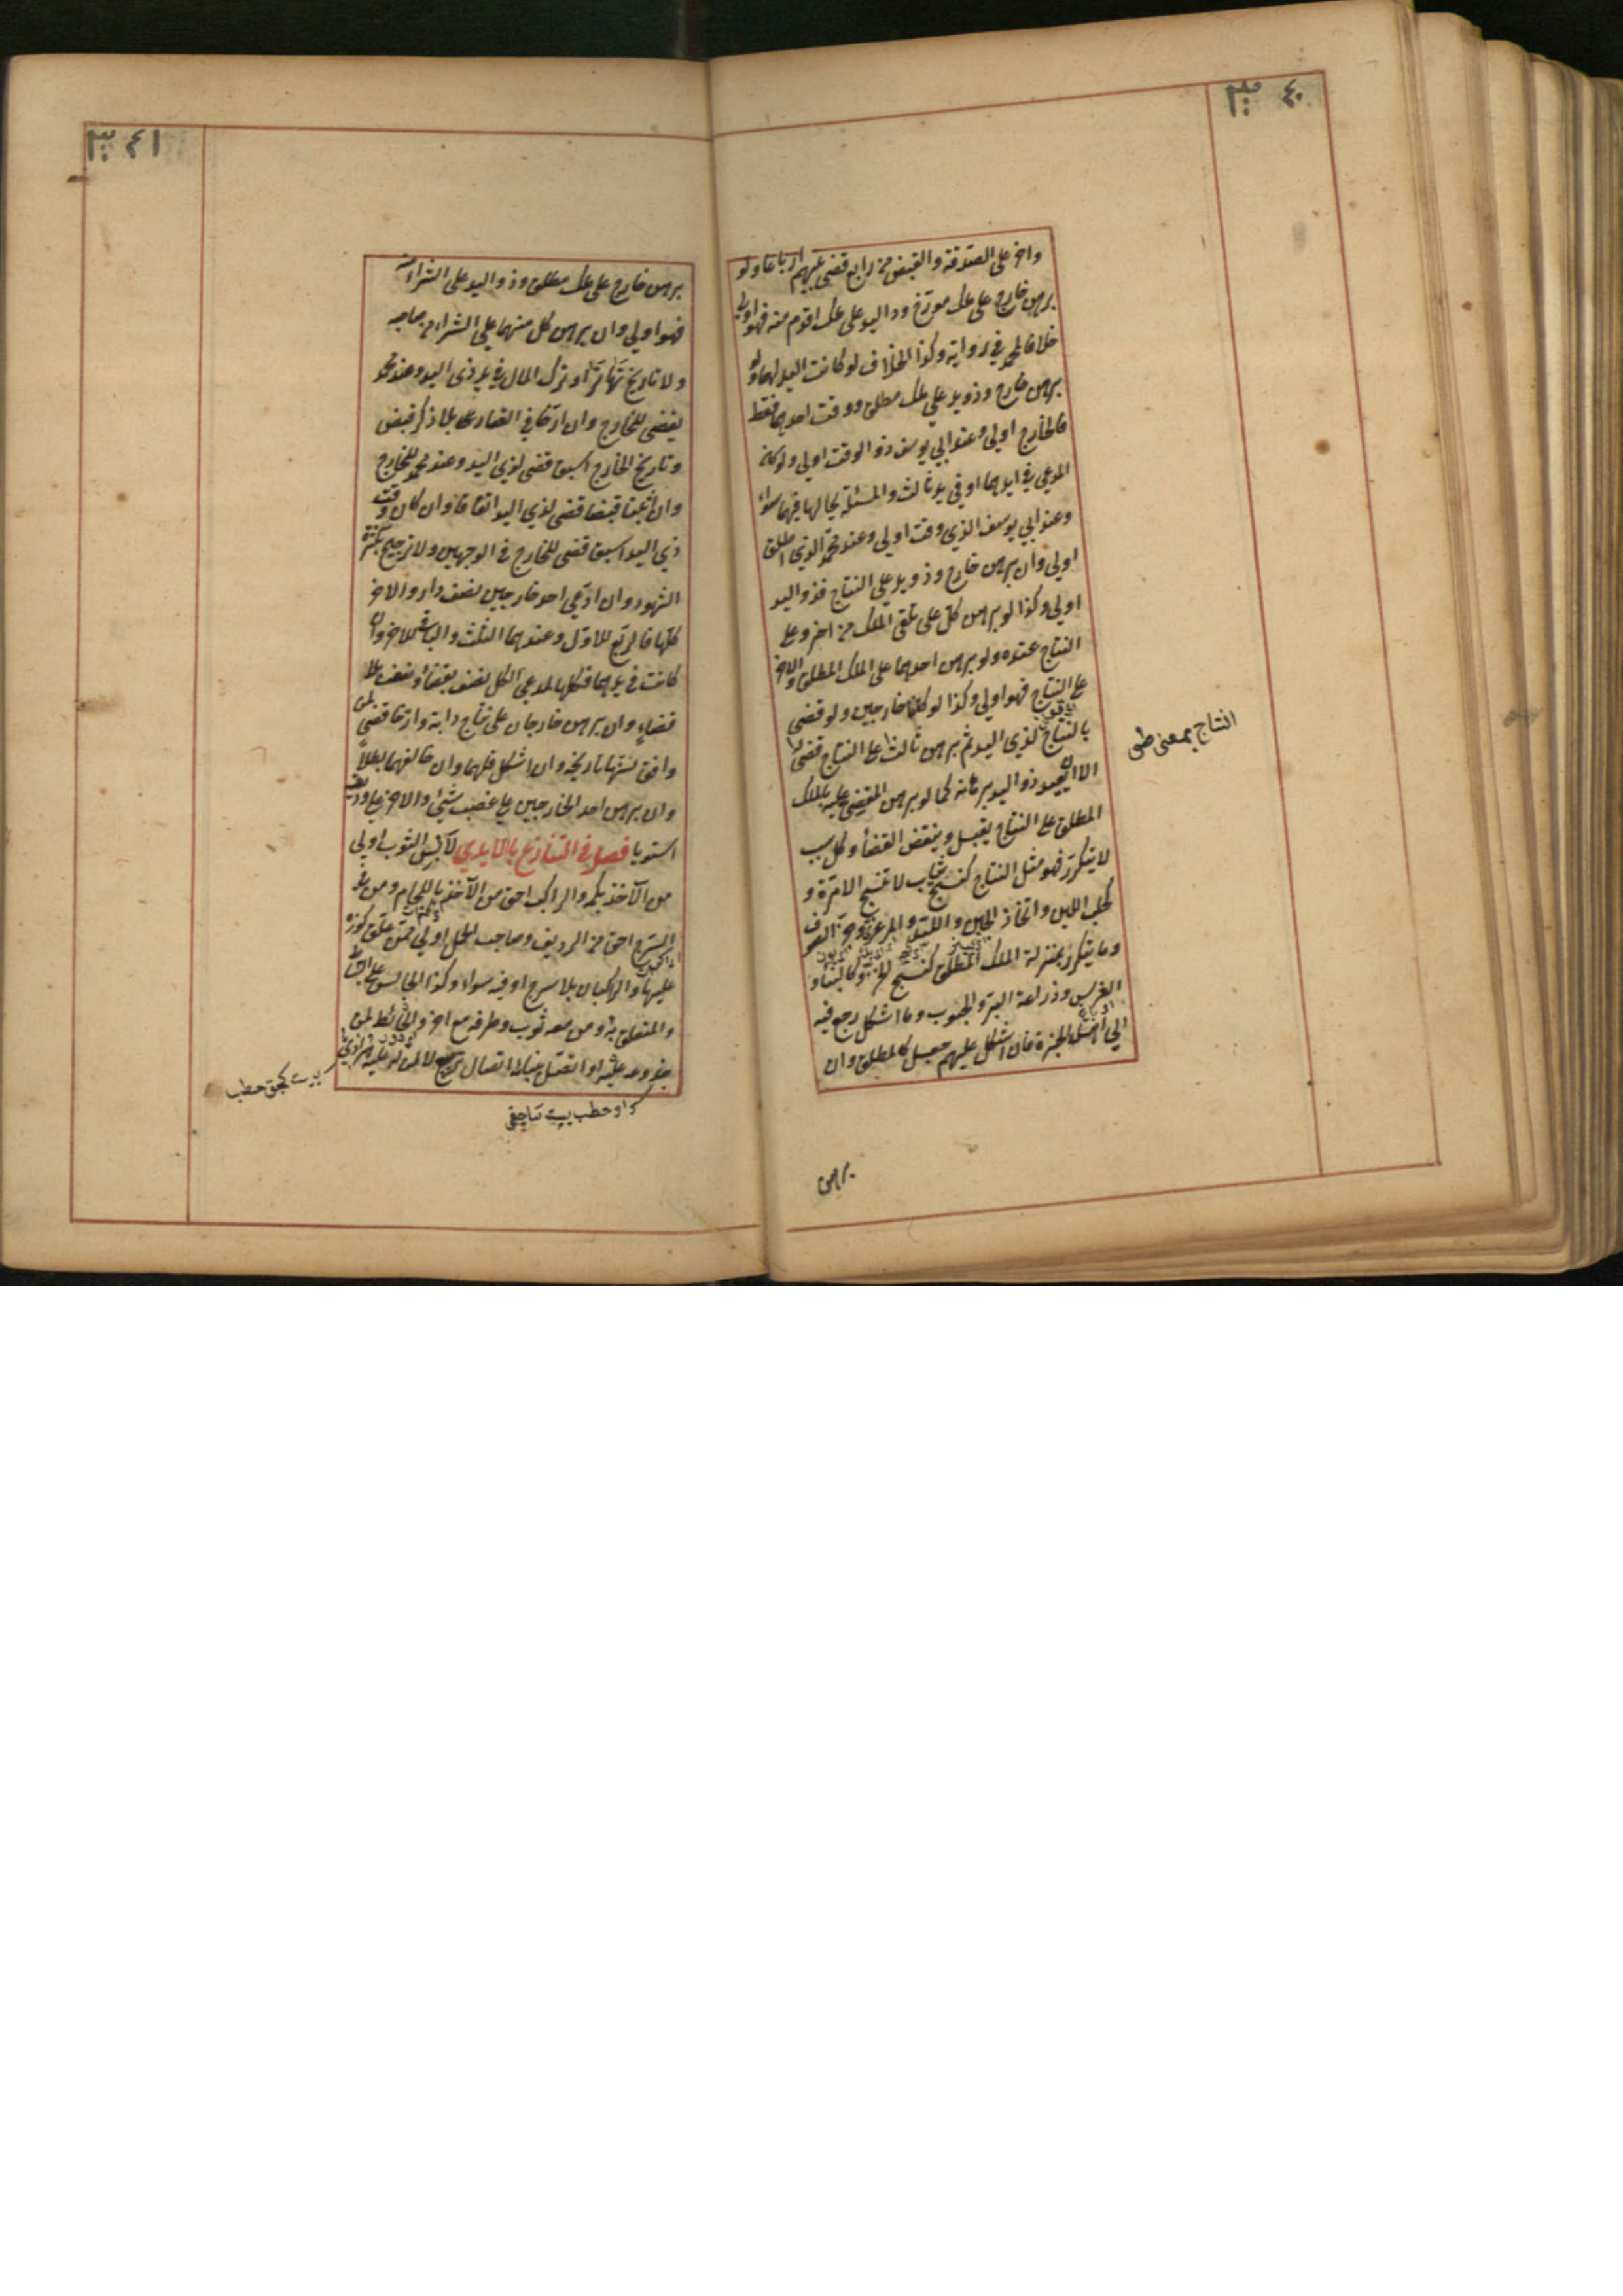 ٤٠
واخر على الصدقة والقبض من رابع قضى بينهم ارباعا ولو
برهن خارج على ملك مورخ وذا اليد على ملك اقدم منه فهو اولى
خلافا لمحمد في رواية وكذا الخلاف لو كانت اليد لهما ولو
برهن خارج وذو يد على ملك مطلق ووقت احدهما فقط
فالخارج اولى وعند ابي يوسف ذو الوقت اولى ولو كان
المدعي في ايديهما او في يد ثالث والمسئلة بحالها فهما سواء
وعند ابي يوسف الذي وقت اولى وعند محمد الذي اطلق
اولى وان برهن خارج وذو يد على النتاج فذو اليد
اولى وكذا لو برهن كل على تلقي الملك من اخر وعلى
النتاج عنده ولو برهن احدهما على الملك المطلق والاخر
على النتاج فهو اولى وكذا لو كانا خارجين ولو قضى
بالنتاج لذي اليد ثم برهن ثالث على النتاج قضى له
الا ان يعيد ذو اليد برهانه كما لو برهن المقضي عليه بالملك
المطلق على النتاج يقبل وينقض القضاء وكل سبب
لا يتكرر فهو مثل النتاج كنسج ثياب لا تنسج الا مرة و
كحلب اللبن واتخاذ الجبن واللبد والمرعزى وجز الصوف
وما يتكرر بمنزلة الملك المطلق كنسج الخز وكالبناء و
الغرس وزراعة البر والحبوب وما اشكل رجع فيه
الى اهل الخبرة فان اشكل عليهم جعل كالمطلق وان
النتاج بمعنى
برهن
٤١
برهن خارج على ملك مطلق وذو اليد على الشراء منه
فهو اولى وان برهن كل منهما على الشراء من صاحبه
ولا تاريخ تهاترا وترك المال في يد ذي اليد وعند محمد
يقضى للخارج وان ارخا في العقار بلا ذكر قبض
وتاريخ الخارج اسبق قضى لذي اليد وعند محمد للخارج
وان اثبتا قبضا قضى لذي اليد اتفاقا وان كان وقت
ذي اليد اسبق قضى للخارج في الوجهين ولا ترجيح بكثرة
الشهود وان ادعى احد خارجين نصف دار والاخر
كلها فالربع للاول وعندهما الثلث والباقي للاخر وان
كانت في يدهما فكلها لمدعي الكل نصف بقضاء ونصف بلا
قضاء وان برهن خارجان على نتاج دابة وارخا قضى لمن
وافق سنها تاريخه وان اشكل فلهما وان خالفهما بطلا
وان برهن احد الخارجين على غصب شيئ والاخر على وديعته
استويا فصل في التنازع بالايدي لابس الثوب اولى
من الآخذ بكمه والراكب احق من الآخذ باللجام ومن في
السرج احق من الرديف وصاحب الحمل اولى ممن علق كوزه
عليها والراكبان بلا سرج او فيه سواء وكذا الجالس على البساط
والمتعلق به ومن معه ثوب وطرفه مع اخر والحائط لمن
جذوعه عليه او اتصل ببنائه اتصال تربيع لا لمن له عليه هرادي